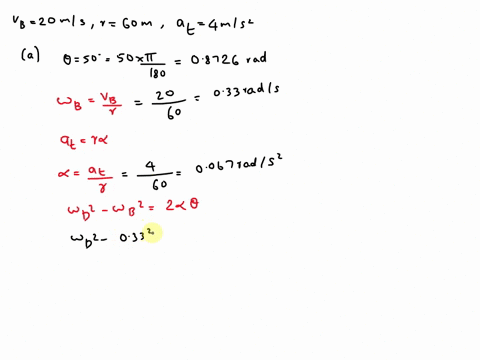 v_B = 20 m/s, r = 60 m, a_t = 4 m/s²
(a) θ = 50° = 50 × π/180 = 0.8726 rad
ω_B = v_B/r = 20/60 = 0.33 rad/s
a_t = rα
α = a_t/r = 4/60 = 0.067 rad/s²
ω_D² - ω_B² = 2αθ
ω_D² - 0.33²